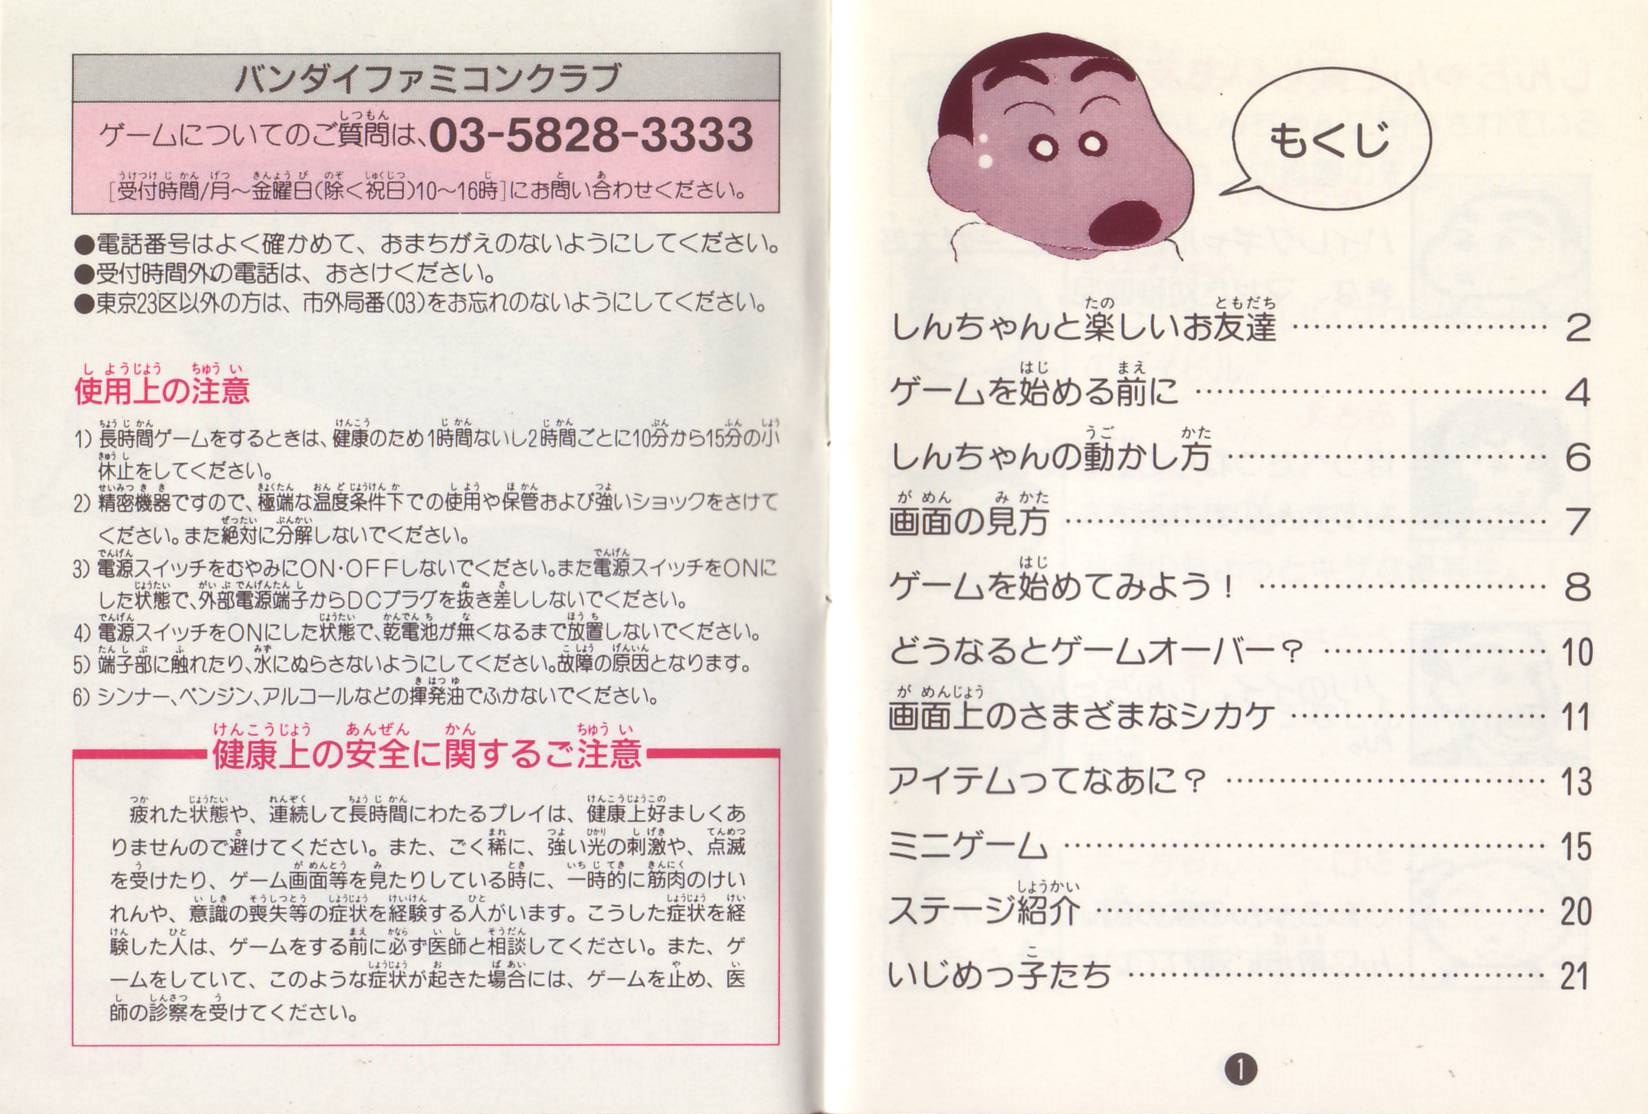 バンダイファミコンクラブ
ゲームについてのご質問は、03-5828-3333
[受付時間/月～金曜日(除く祝日)10～16時]にお問い合わせください。
●電話番号はよく確かめて、おまちがえのないようにしてください。
●受付時間外の電話は、おさけください。
●東京23区以外の方は、市外局番(03)をお忘れのないようにしてください。
使用上の注意
1) 長時間ゲームをするときは、健康のため1時間ないし2時間ごとに10分から15分の小
休止をしてください。
2) 精密機器ですので、極端な温度条件下での使用や保管および強いショックをさけて
ください。また絶対に分解しないでください。
3) 電源スイッチをむやみにON・OFFしないでください。また電源スイッチをONに
した状態で、外部電源端子からDCプラグを抜き差ししないでください。
4) 電源スイッチをONにした状態で、乾電池が無くなるまで放置しないでください。
5) 端子部に触れたり、水にぬらさないようにしてください。故障の原因となります。
6) シンナー、ベンジン、アルコールなどの揮発油でふかないでください。
健康上の安全に関するご注意
疲れた状態や、連続して長時間にわたるプレイは、健康上好ましくあ
りませんので避けてください。また、ごく稀に、強い光の刺激や、点滅
を受けたり、ゲーム画面等を見たりしている時に、一時的に筋肉のけい
れんや、意識の喪失等の症状を経験する人がいます。こうした症状を経
験した人は、ゲームをする前に必ず医師と相談してください。また、ゲ
ームをしていて、このような症状が起きた場合には、ゲームを止め、医
師の診察を受けてください。
もくじ
しんちゃんと楽しいお友達 ………………… 2
ゲームを始める前に ………………… 4
しんちゃんの動かし方 ………………… 6
画面の見方 ………………… 7
ゲームを始めてみよう！ ………………… 8
どうなるとゲームオーバー？ ………………… 10
画面上のさまざまなシカケ ………………… 11
アイテムってなあに？ ………………… 13
ミニゲーム ………………… 15
ステージ紹介 ………………… 20
いじめっ子たち ………………… 21
1